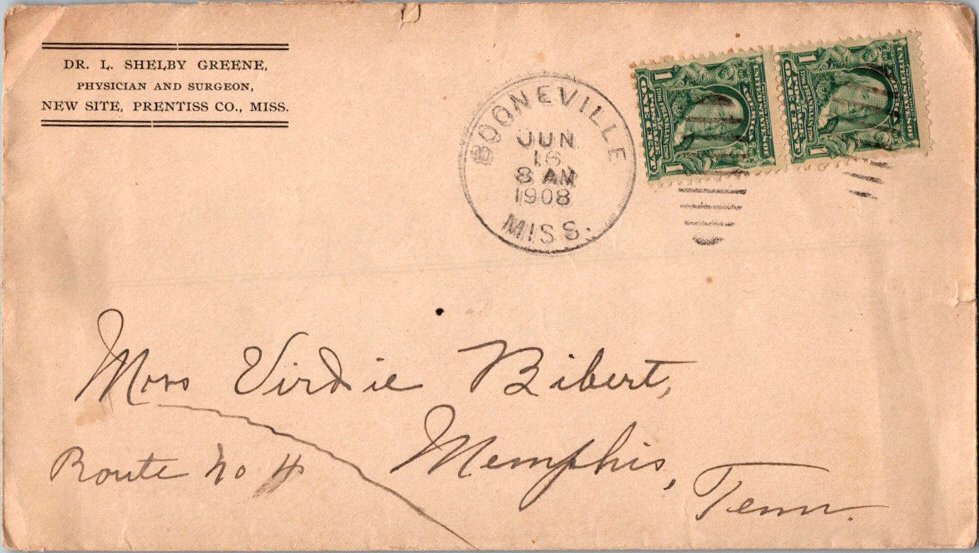 DR. L. SHELBY GREENE,
PHYSICIAN AND SURGEON,
NEW SITE, PRENTISS CO., MISS.
BOONEVILLE
JUN
16
8 AM
1908
MISS.
1 1
1 1
Miss Virdie Bibert,
Route No 4
Memphis,
Tenn.